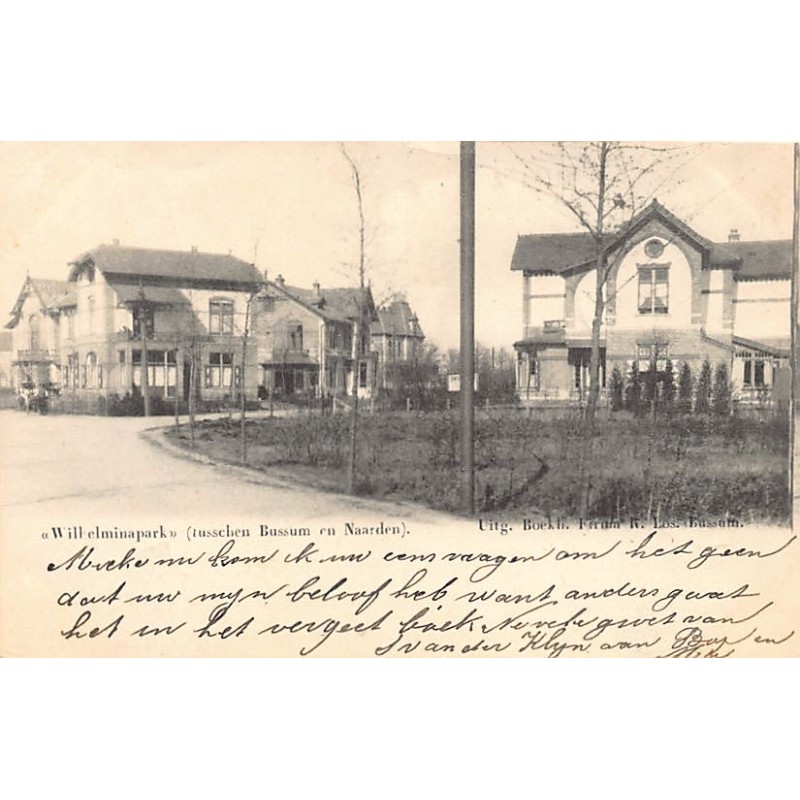 «Wilhelminapark» (tusschen Bussum en Naarden).
Uitg. Boekh. Firma R. Los. Bussum.
Mieke nu kom ik uw eens vragen om het geen
dat uw mijn beloof heb want anders gaat
het in het vergeet boek Nevele groet van
J van der Klijn aan Bap en